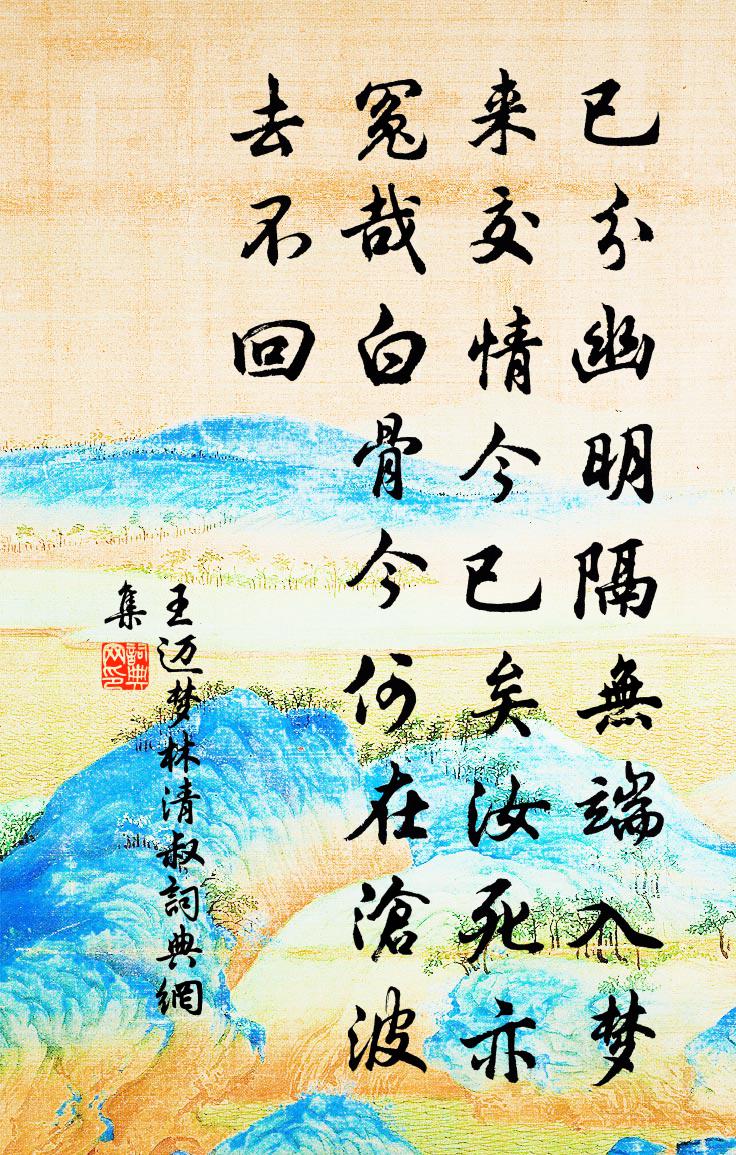 已分幽明隔無端入梦
来交情今已矣汝死亦
冤哉白骨今何在滄波
去不回
王迈梦林清叔詞典網
集
詞典网印